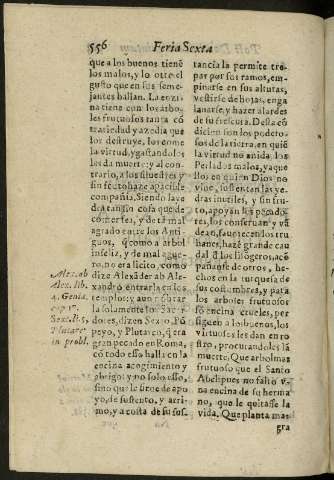 556 Feria Sexta
que a los buenos tienē
los malos, y lo otro el
gusto que en sus seme-
jantes hallan. La enzi-
na tiene con los árbo-
les fructuosos tanta cō
trariedad y azedia que
los destruye, los come
la virtud, y gastandolos
les da muerte: y al con-
trario, a los siluestres y
sin fruto haze apacible
compañia. Siendo la ye
dra tan sin
y de mal
agrado entre los Anti-
guos, q̄ como a arbol
infeliz, y de mal ague-
ro, no era licito, como
dize Alexāder ab Ale-
xandro entrarla en los
templos: y aun nōbrar
la solamente los Sacer-
dotes, dize Sexto Pō
peyo, y Plutarco, q̄ era
gran pecado en Roma,
cō todo esso halla en la
encina acogimiento y
abrigo: y no solo esso,
sino que le sirue de apo
yo, de sustento, y arri-
mo, y a costa de su sus-
Alex. ab
Alex. lib.
4. Genia.
cap. 17.
Sex. P. 5.
Plutarc.
in probl.
tancia la permite tre-
par por sus ramos, em-
pinarse en sus alturas,
vestirse de hojas, enga
lanarse, y hazer alardes
de su frescura. Desta cō
dicion son los podero-
sos de la tierra, en quiē
la virtud no anida. los
Perlados malos, y aque
llos en quien Dios no
viue, sustentan las ye-
dras inutiles, y sin fru-
to, apoyan los pecado-
res, los conseruan y vā
dean, fauorecen los tru
hanes, hazē grande cau
dal de los lisogeros, acō
pañanse de otros, he-
chos en la turquesa de
sus costumbres, y para
los arboles frutuosos
sō encina crueles, per
siguen a los buenos, los
virtuosos les dan en ro
stro, procutandoles la
muerte. Que arbol mas
frutuoso que el Santo
Abel? pues no faltò v-
na encina de su herma
no, que le quitasse la
vida. Que planta mas
gra